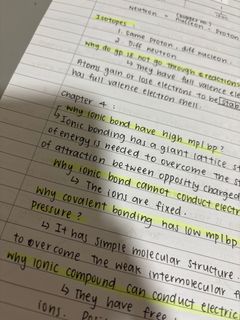 Neutron =
nucleon. proton
Isotopes
1. same proton, diff nucleon.
2. Diff neutron
Why do gp 18 not go through a reactions
↳ They have full valence ele
Atoms gain or lose electrons to be stab
has full valence electron shell.
Chapter 4 :
Why ionic bond have high mpl bp?
↳ Ionic bonding has a giant lattice s
of energy is needed to overcome the s
of attraction between oppositly charged
Why ionic bond cannot conduct electr
↳ The ions are fixed.
why covalent bonding has low mpl bp
pressure?
↳ It has simple molecular structure.
to overcome the weak intermolecular f
why ionic compound can conduct electric
↳ They have free
ions.